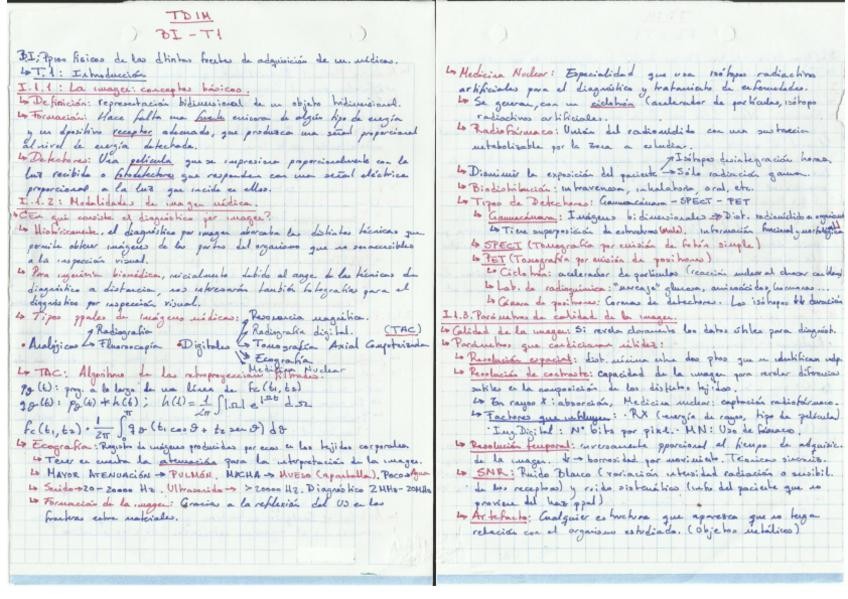 TDIM
BI - T1
BI: Ppios físicos de las dtintas fuentes de adquisición de im. médicas.
↳ T.1: Introducción
I.1.1: La imagen: conceptos básicos.
↳ Definición: representación bidimensional de un objeto tridimensional.
↳ Formación: Hace falta una fuente emisora de algún tipo de energía
y un dpositivo receptor adecuado, que produzca una señal proporcional
al nivel de energía detectada.
↳ Detectores: Usa película que se impresiona proporcionalmente con la
luz recibida o fotodetectores que responden con una señal eléctrica
proporcional a la luz que incide en ellos.
I.1.2: Modalidades de imagen médica.
↳ ¿En qué consiste el diagnóstico por imagen?
↳ Históricamente, el diagnóstico por imagen abarcaba las distintas técnicas que
permite obtener imágenes de las partes del organismo que no son accesibles
a la inspección visual.
↳ Para ingeniería biomédica, inicialmente debido al auge de las técnicas de
diagnóstico a distancia, nos interesarán también fotografías para el
diagnóstico por inspección visual.
↳ Tipos ppales de imágenes médicas:
• Analógicas
Radiografía
Fluoroscopía
• Digitales
Resonancia magnética.
Radiografía digital.
Tomografía Axial Computerizada (TAC)
Ecografía
Medicina Nuclear
↳ TAC: Algoritmo de las retroproyecciones filtradas.
pθ(t): proy. a lo largo de una línea de fc(t1,t2)
qθ(t): pθ(t) * h(t); h(t) = 1/2π ∫|Ω| e^jΩt dΩ
fc(t1,t2) = 1/2π ∫₀^π qθ (t1 cosθ + t2 senθ) dθ
↳ Ecografía: Registro de imágenes producidas por ecos en los tejidos corporales.
↳ Tener en cuenta la atenuación para la interpretación de la imagen.
↳ MAYOR ATENUACIÓN → PULMÓN. MUCHA → HUESO (apantalla). Poca → Agua
↳ Sonido → 20 - 20000 Hz. Ultrasonido → >20000 Hz. Diagnóstico 2MHz - 20MHz
↳ Formación de la imagen: Gracias a la reflexión del US en las
fronteras entre materiales.
↳ Medicina Nuclear: Especialidad que usa isótopos radiactivos
artificiales para el diagnóstico y tratamiento de enfermedades.
↳ Se generan con un ciclotrón (acelerador de partículas, isótopo
radiactivos artificiales.
↳ Radiofármaco: Unión del radionúclido con una sustancia
metabolizable por la zona a estudiar.
↳ Disminuir la exposición del paciente
Isótopos desintegración horas.
Sólo radiación gamma.
↳ Biodistribución: intravenosa, inhalatoria, oral, etc.
↳ Tipos de Detectores: Gammacámara - SPECT - PET
↳ Gammacámara: Imágenes bidimensionales → Dist. radionúclido en organismo
↳ Tiene superposición de estructuras (malo). Información funcional y morfológica
↳ SPECT (Tomografía por emisión de fotón simple)
↳ PET (Tomografía por emisión de positrones)
↳ Ciclotrón: acelerador de partículas (reacción nuclear al chocar con
↳ Lab. de radioquímica: "marcaje" glucosa, aminoácidos, hormonas...
↳ Cámara de positrones: Coronas de detectores. Los isótopos duración
I.1.3: Parámetros de calidad de la imagen.
↳ Calidad de la imagen: Si revela claramente los datos útiles para diagnóst.
↳ Parámetros que condicionan nitidez:
↳ Resolución espacial: dist. mínima entre dos ptos que se identifican indp.
↳ Resolución de contraste: capacidad de la imagen para revelar diferencias
sutiles en la composición de los distintos tejidos.
↳ En rayos X: absorción, Medicina nuclear: captación radiofármaco.
↳ Factores que influyen: · RX (energía de rayos, tipo de película)
· Img Digital: Nº bits por pixel. · MN: Uso de fármaco.
↳ Resolución temporal: inversamente pporcional al tiempo de adquisic.
de la imagen. ↓ → borrosidad por movimiento. Técnicas
↳ SNR: Ruido Blanco (variación intensidad radiación o sensibil.
de los receptores) y ruido sistemático (info del paciente que no
proviene del haz ppal)
↳ Artefacto: Cualquier estructura que aparezca que no tenga
relación con el organismo estudiado. (Objetos metálicos)